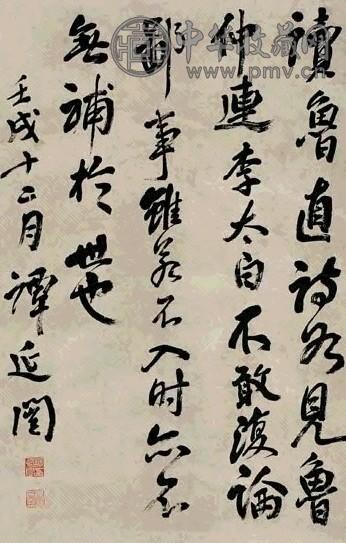 讀魯直詩如見魯
仲連李太白不敢復論
鄙事雖若不入时亦不
無補於世也
壬戌十二月譚延闓
中华收藏网
www.pmv.cn